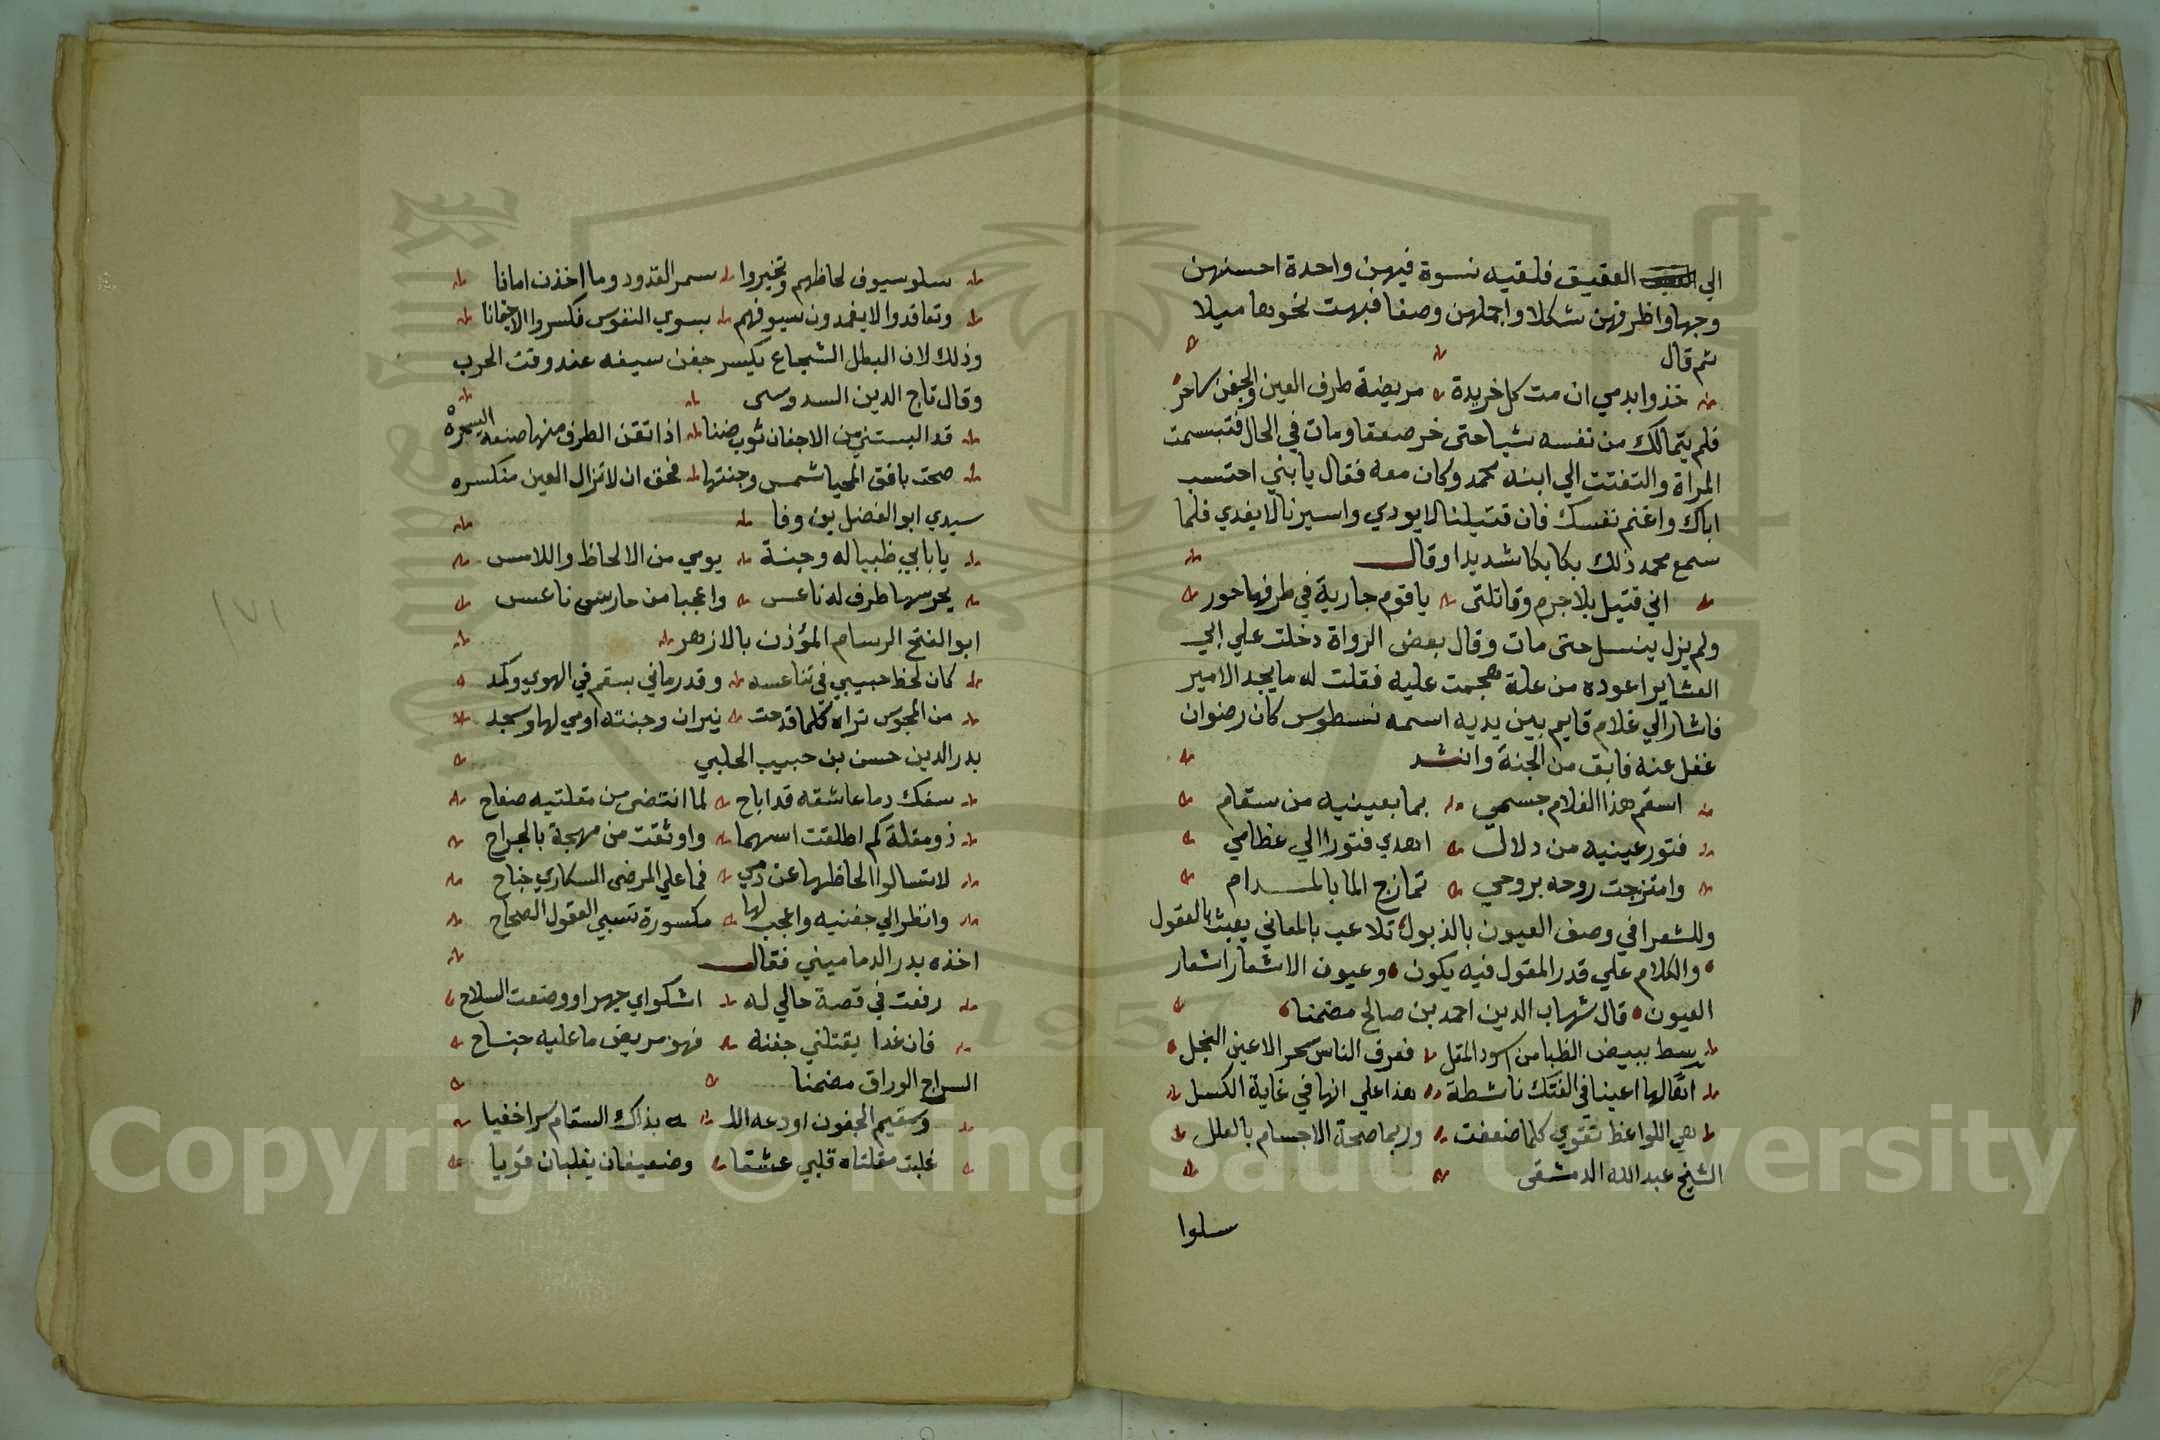 الي العقيق فلقيه نسوة فيهن واحدة احسنهن
وجها واظرفهن شكلا واجملهن وصفا فبهت نحوها ميلا
ثم قال
خذوا بدمي ان مت كل خريدة مريضة طرف العين والجفن ساحر
فلم يتمالك من نفسه شيا حتى خر صعقا ومات في الحال فتبسمت
المراة والتفتت الي ابنه محمد وكان معه فقال يا بني احتسب
اباك واغنم نفسك فان قتيلنا لا يودي واسيرنا لا يفدي فلما
سمع محمد ذلك بكا بكا شديدا وقال
اني قتيل بلا جرم وقاتلتى يا قوم جارية في طرفها حور
ولم يزل ينسل حتى مات وقال بعض الرواة دخلت علي ابي
العشاير اعوده من علة هجمت عليه فقلت له ما يجد الامير
فاشار الي غلام قايم بين يديه اسمه نسطوس كان رضوان
غفل عنه فابق من الجنة وانشد
اسقم هذا الغلام جسمي بما بعينيه من سقام
فتور عينيه من دلال اهدي فتورا الي عظامي
وامتزجت روحه بروحي تمازج الما بالمدام
وللشعرا في وصف العيون بالذبول تلاعب بالمعاني يعبث بالعقول
والكلام علي قدر المقول فيه يكون وعيون الاشعار اشعار
العيون قال شهاب الدين احمد بن صالح مضمنا
يسط ببيض الظبا من اسود المقل فعرف الناس سحر الاعين النجل
انقالها اعينا في الفتك ناشطة هذا علي انها في غاية الكسل
هي اللواعظ تقوي كلما ضعفت وربما صحة الاجسام بالعلل
الشيخ عبد الله الدمشقى
سلوا
سلو سيوف لحاظهم وتخيروا سمر القدود وما اخذن امانا
وتعاقدوا لا يغمدون سيوفهم بسوي النفوس فكسروا الاجفانا
وذلك لان البطل الشجاع يكسر جفن سيفه عند وقت الحرب
وقال تاج الدين السدوسى
قد البستني من الاجفان ثوب ضنا اذ اتقن الطرف منها صنعة السحره
صحت بافق المحيا شمس وجنتها فحق ان لا تزال العين منكسره
سيدي ابو الفضل بن وفا
يا بابي ظبيا له وجنة يومي من الالحاظ واللامس
يحرسها طرف له ناعس واعجبا من حارس ناعس
ابو الفتح الرسام المؤذن بالازهر
كان لحظ حبيبي في تناعسه وقد رماني بسقم في الهوي وكمد
من المجوس تراه كلما قدحت نيران وجنته اومي لها وسجد
بدر الدين حسن بن حبيب الحلبي
سفك دما عاشقه قد اباح لما انتضى من مقلتيه صفاح
ذو مقلة كم اطلقت اسهما واوثقت من مهجة بالجراح
لا تسالوا الحاظها عن دمي فما علي المرضى السكاري جناح
وانظر الي جفنيه واعجب لها مكسورة تسبي العقول الصحاح
اخذه بدر الدماميني فقال
رفعت في قصة حالي له اشكو اي جهرا ووضعت السلاح
فان غدا يقتلني جفنه فهو مريض ما عليه جناح
السراج الوراق مضمنا
وسقيم الجفون اودعه الل ه بذاك السقام سرا خفيا
غلبت مقلتاه قلبي عشقا وضعيفان يغلبان قويا
١٧١
Copyright © King Saud University
1957